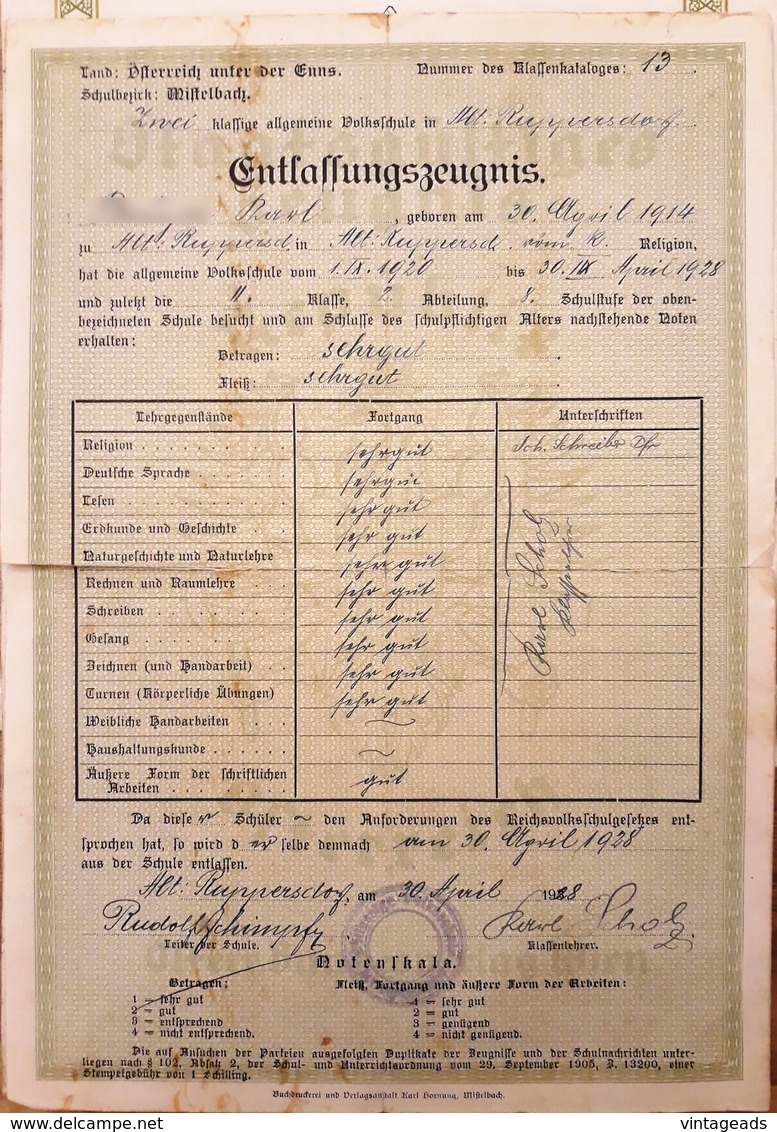 Land: Österreich unter der Enns. Nummer des Klassenkataloges: 13.
Schulbezirk: Mistelbach.
Zwei klassige allgemeine Volksschule in Alt: Ruppersdorf.
Entlassungszeugnis.
Karl, geboren am 30. April 1914
zu Alt: Ruppersd. in Alt: Ruppersd. röm. k. Religion,
hat die allgemeine Volksschule vom 1. IX. 1920 bis 30. April 1928
und zuletzt die II. Klasse, 2. Abteilung, 8. Schulstufe der oben-
bezeichneten Schule besucht und am Schlusse des schulpflichtigen Alters nachstehende Noten
erhalten:
Betragen: sehrgut.
Fleiß: sehrgut.
Lehrgegenstände Fortgang Unterschriften
Religion sehrgut Joh. Schreiber Pfr
Deutsche Sprache sehrgut
Lesen sehr gut
Erdkunde und Geschichte sehr gut
Naturgeschichte und Naturlehre sehr gut
Rechnen und Raumlehre sehr gut
Schreiben sehr gut
Gesang sehr gut
Zeichnen (und Handarbeit) sehr gut
Turnen (Körperliche Übungen) sehr gut
Karl Scholz
Weibliche Handarbeiten ~
Haushaltungskunde ~
Äußere Form der schriftlichen
Arbeiten gut
Da diese r Schüler ~ den Anforderungen des Reichsvolksschulgesetzes ent-
sprochen hat, so wird d er selbe demnach am 30. April 1928
aus der Schule entlassen.
Alt: Ruppersdorf, am 30. April 1928
Rudolf Schimpf Karl Scholz
Leiter der Schule. Klassenlehrer.
Notenskala.
Betragen: Fleiß, Fortgang und äußere Form der Arbeiten:
1 = sehr gut 1 = sehr gut
2 = gut 2 = gut
3 = entsprechend 3 = genügend
4 = nicht entsprechend. 4 = nicht genügend.
Die auf Ansuchen der Parteien ausgefolgten Duplikate der Zeugnisse und der Schulnachrichten unter-
liegen nach § 102, Absatz 2, der Schul- und Unterrichtsordnung vom 29. September 1905, Z. 13200, einer
Stempelgebühr von 1 Schilling.
Buchdruckerei und Verlagsanstalt Karl Hornung, Mistelbach.
vintageads